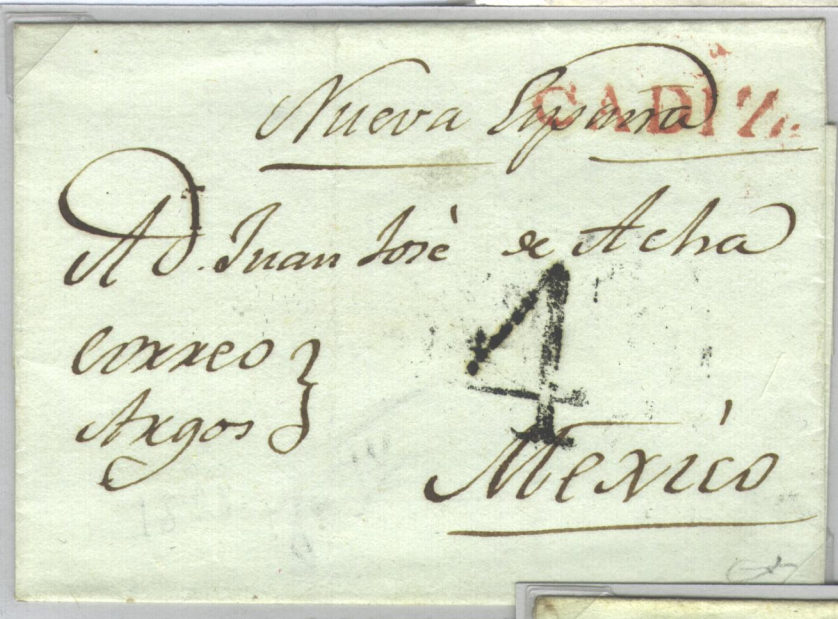 Nueva España CADIZ
A D. Juan Josè de Acha
correo
Argos
4
Mexico